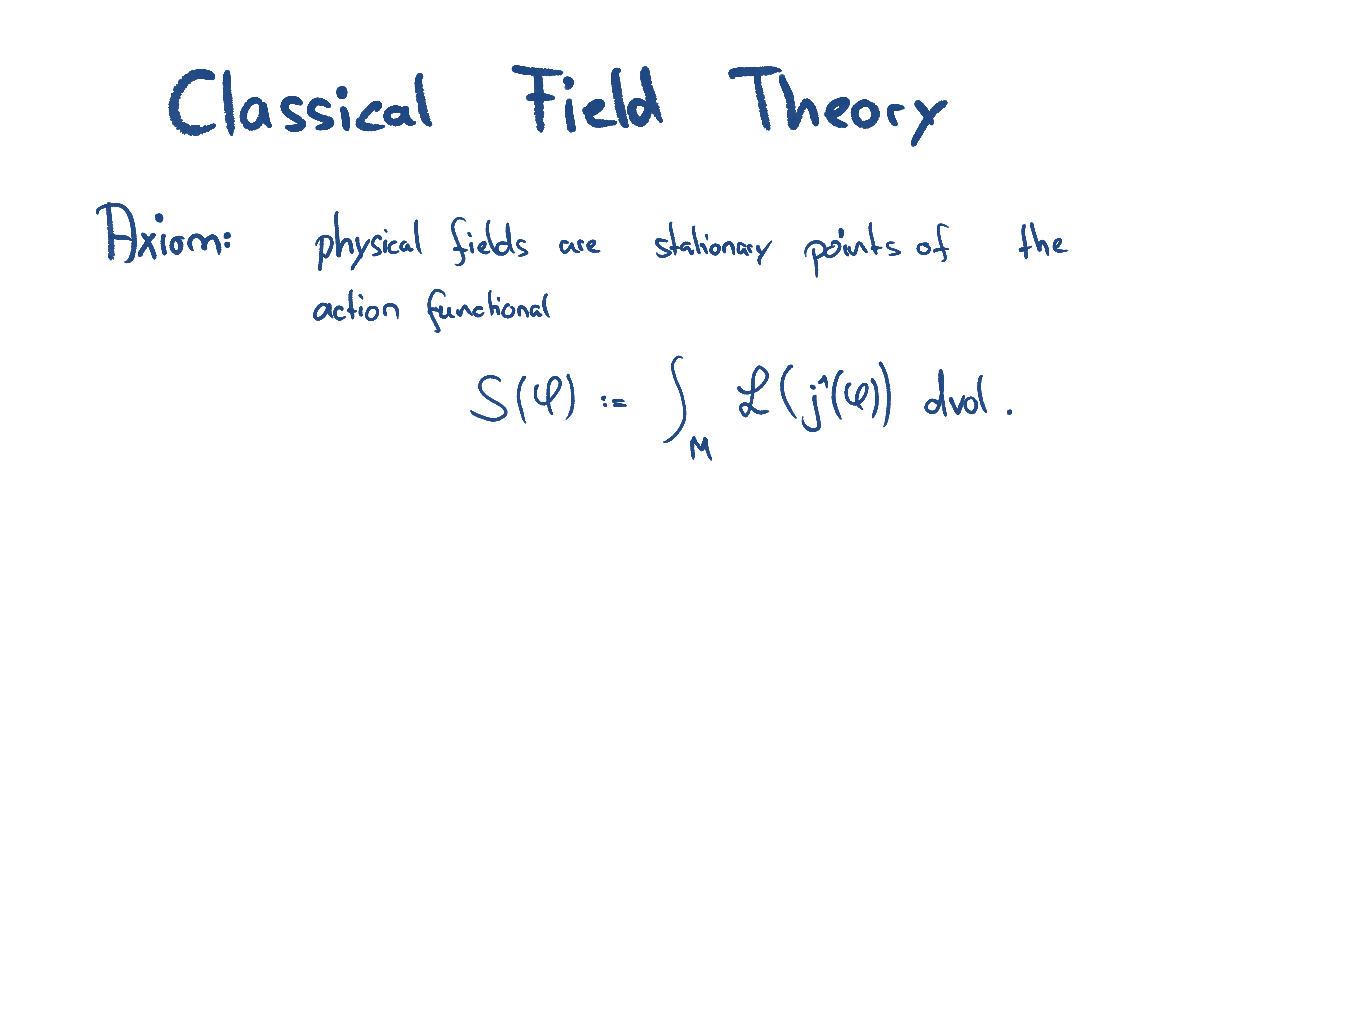 Classical Field Theory
Axiom: physical fields are stationary points of the
action functional
S(φ) := ∫_M ℒ(j¹(φ)) dvol.